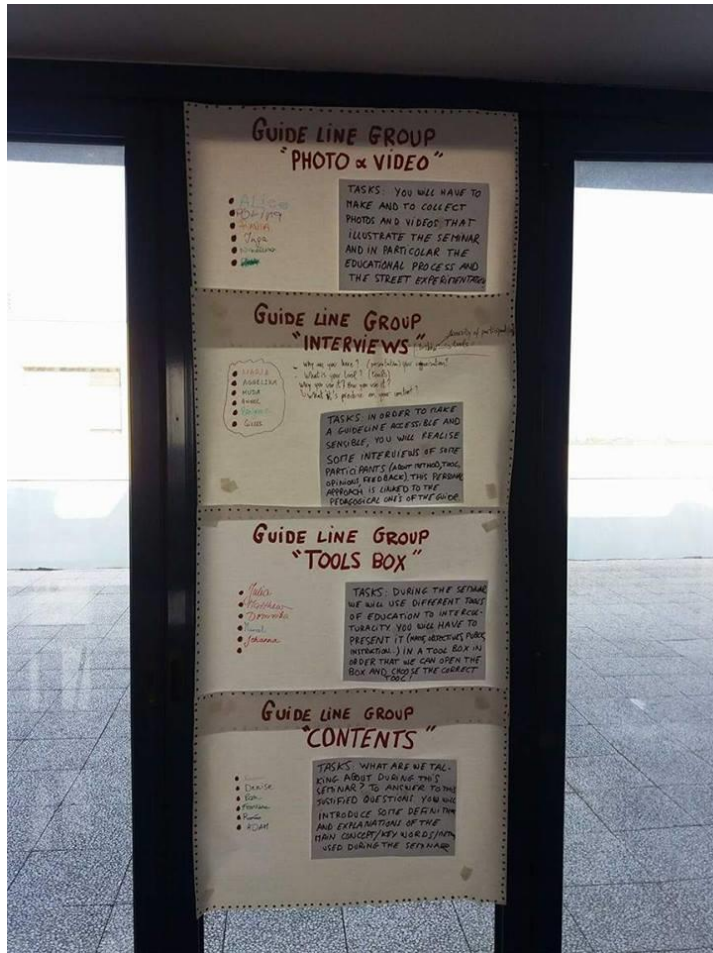 GUIDE LINE GROUP
"PHOTO & VIDEO"
ALICE
TASKS: YOU WILL HAVE TO
MAKE AND TO COLLECT
PHOTOS AND VIDEOS THAT
ILLUSTRATE THE SEMINAR
AND IN PARTICOLAR THE
EDUCATIONAL PROCESS AND
THE STREET EXPERIMENTATION
GUIDE LINE GROUP
"INTERVIEWS"
- Why are you here? (presentation) your organisation?
- What is your tool? (tools)
Why you use it? How you use it?
MARIA
TASKS: IN ORDER TO MAKE
A GUIDELINE ACCESSIBLE AND
SENSIBLE, YOU WILL REALISE
SOME INTERVIEWS OF SOME
PARTICIPANTS (ABOUT METHOD, TOOL,
OPINIONS, FEEDBACK). THIS PERSONAL
APPROACH IS LINKED TO THE
PEDAGOGICAL ONE'S OF THE GUIDE
GUIDE LINE GROUP
"TOOLS BOX"
Julia
Johanna
TASKS: DURING THE SEMINAR
WE WILL USE DIFFERENT TOOLS
OF EDUCATION TO INTERCUL-
TURALITY. YOU WILL HAVE TO
PRESENT IT (NAME, OBJECTIVES, PUBLIC,
INSTRUCTION...) IN A TOOL BOX IN
ORDER THAT WE CAN OPEN THE
BOX AND CHOOSE THE CORRECT
TOOL!
GUIDE LINE GROUP
"CONTENTS"
DENISA
ADAM
TASKS: WHAT ARE WE TAL-
KING ABOUT DURING THIS
SEMINAR? TO ANSWER TO THIS
JUSTIFIED QUESTIONS YOU WILL
INTRODUCE SOME DEFINITION
AND EXPLANATIONS OF THE
MAIN CONCEPT/KEY WORDS/
USED DURING THE SEMINAR